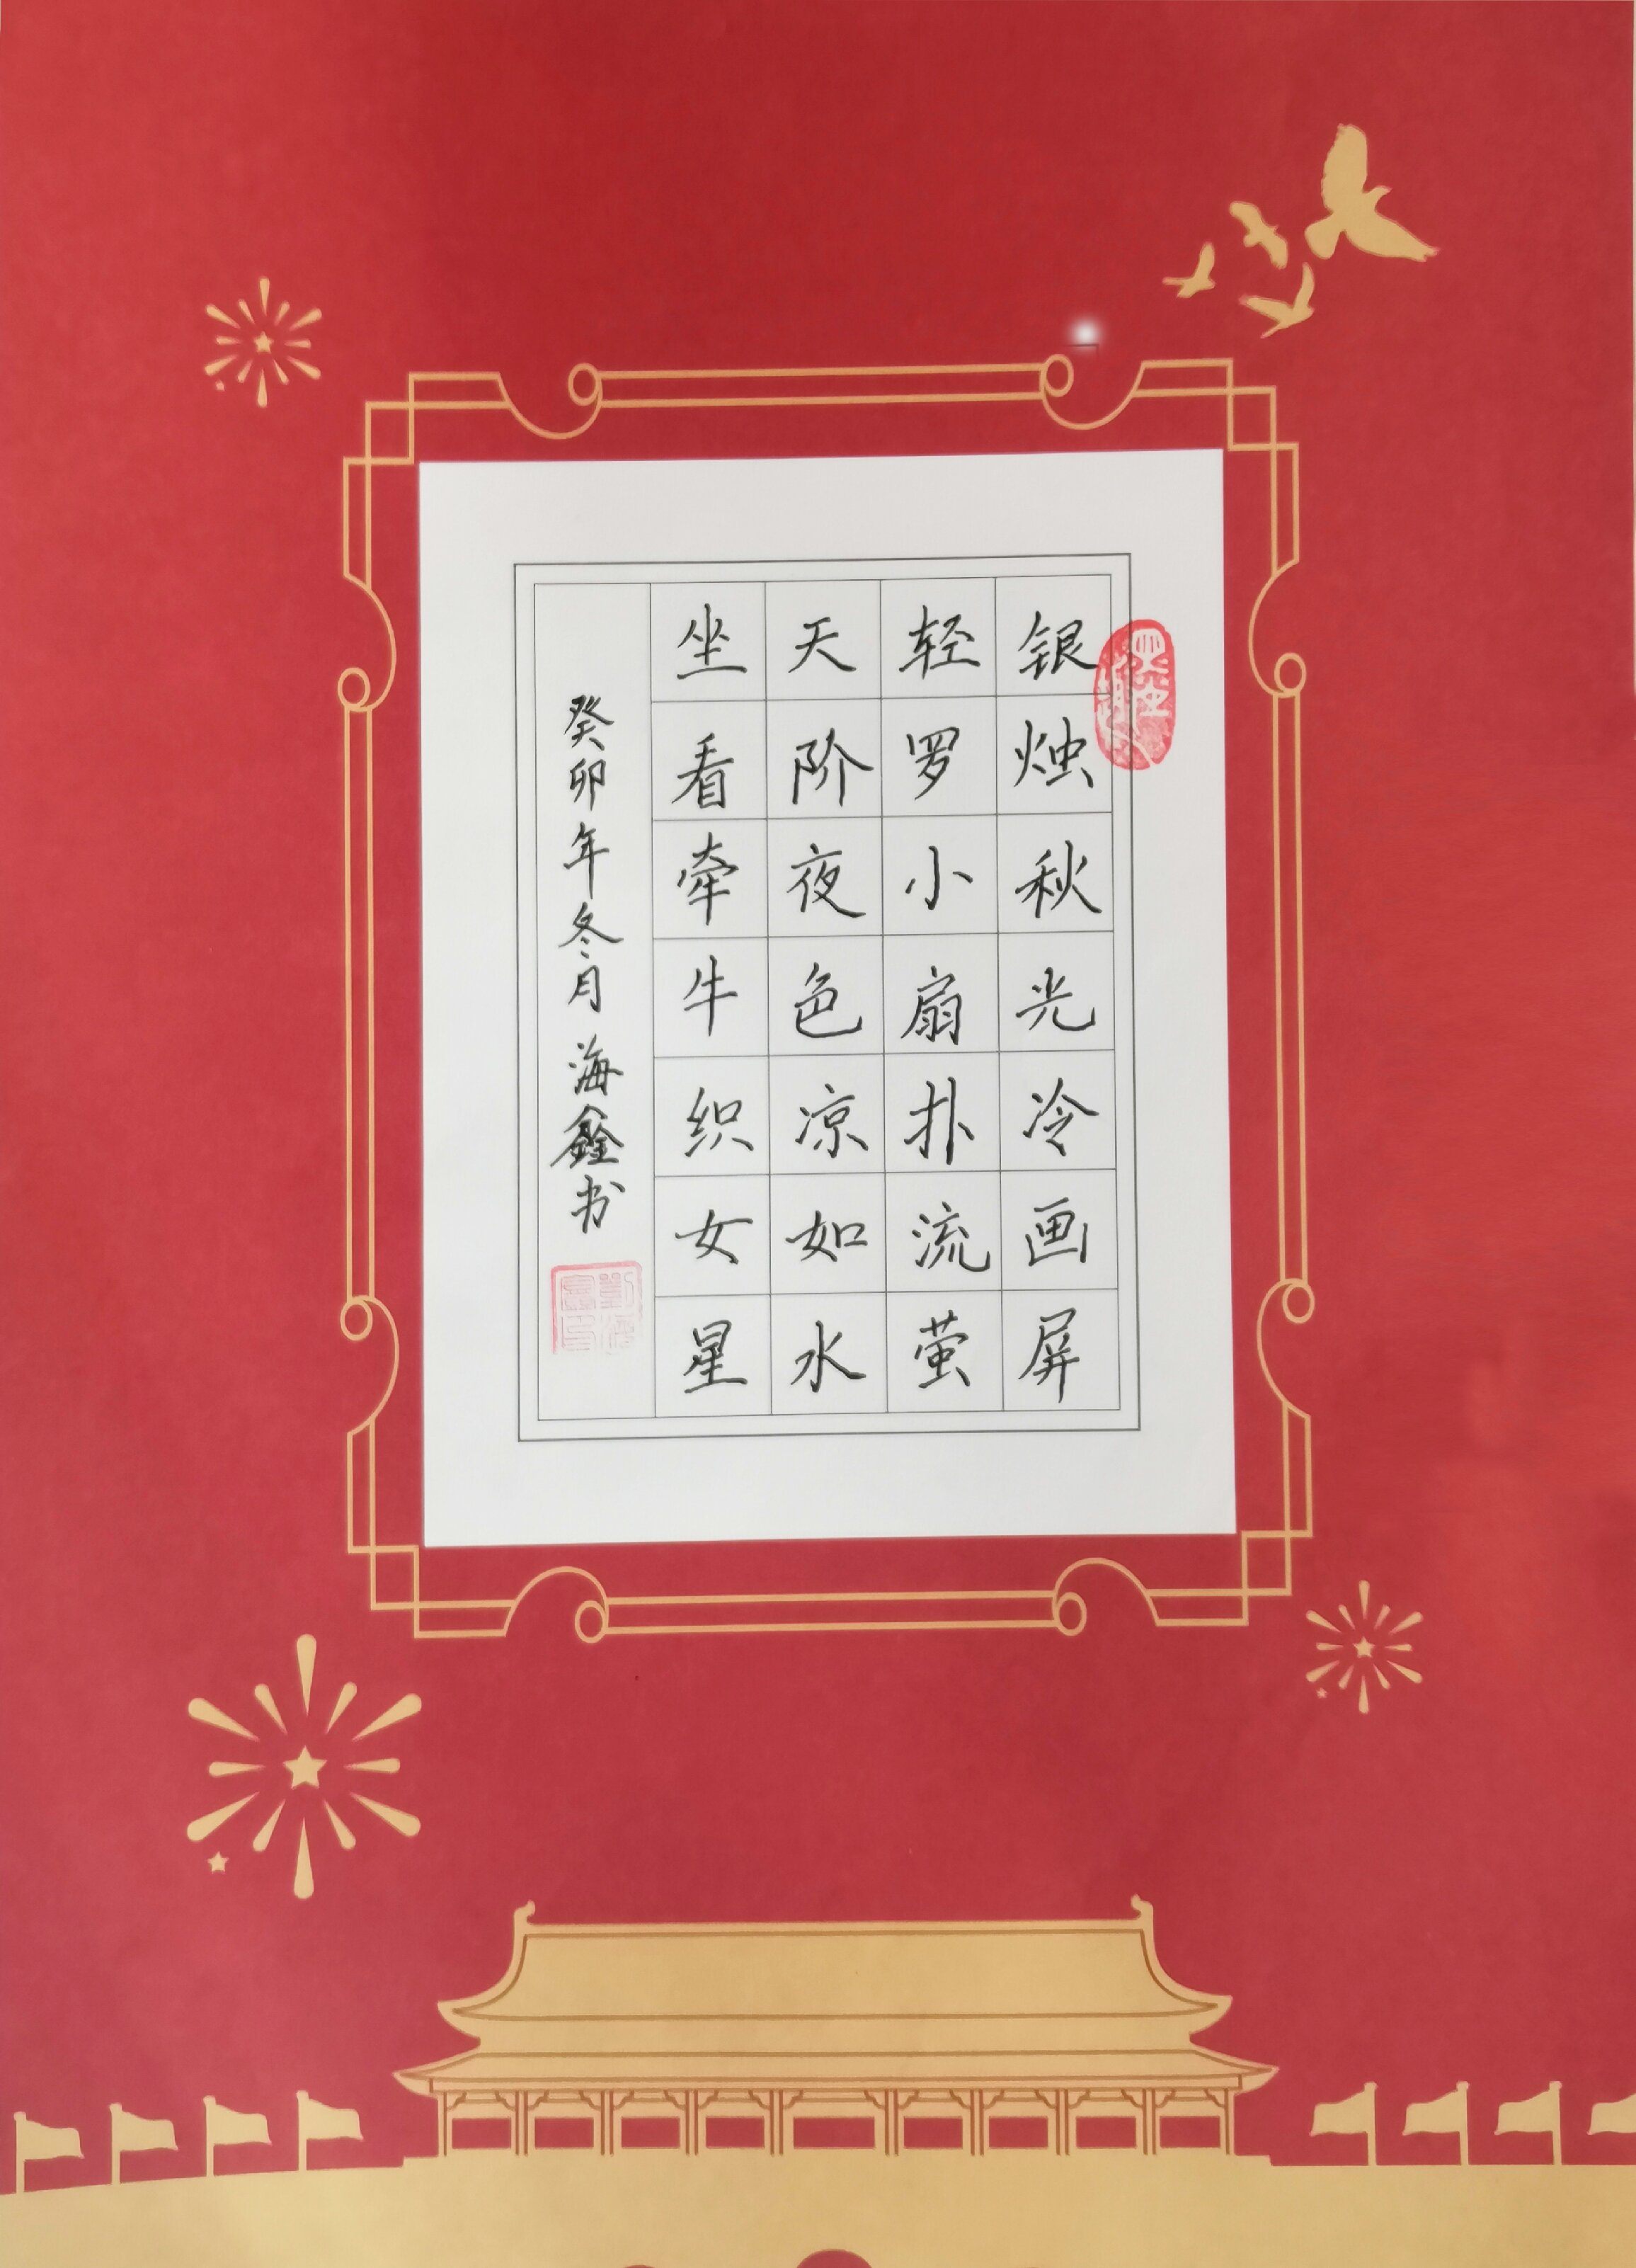 银烛秋光冷画屏
轻罗小扇扑流萤
天阶夜色凉如水
坐看牵牛织女星
癸卯年冬月海鑫书